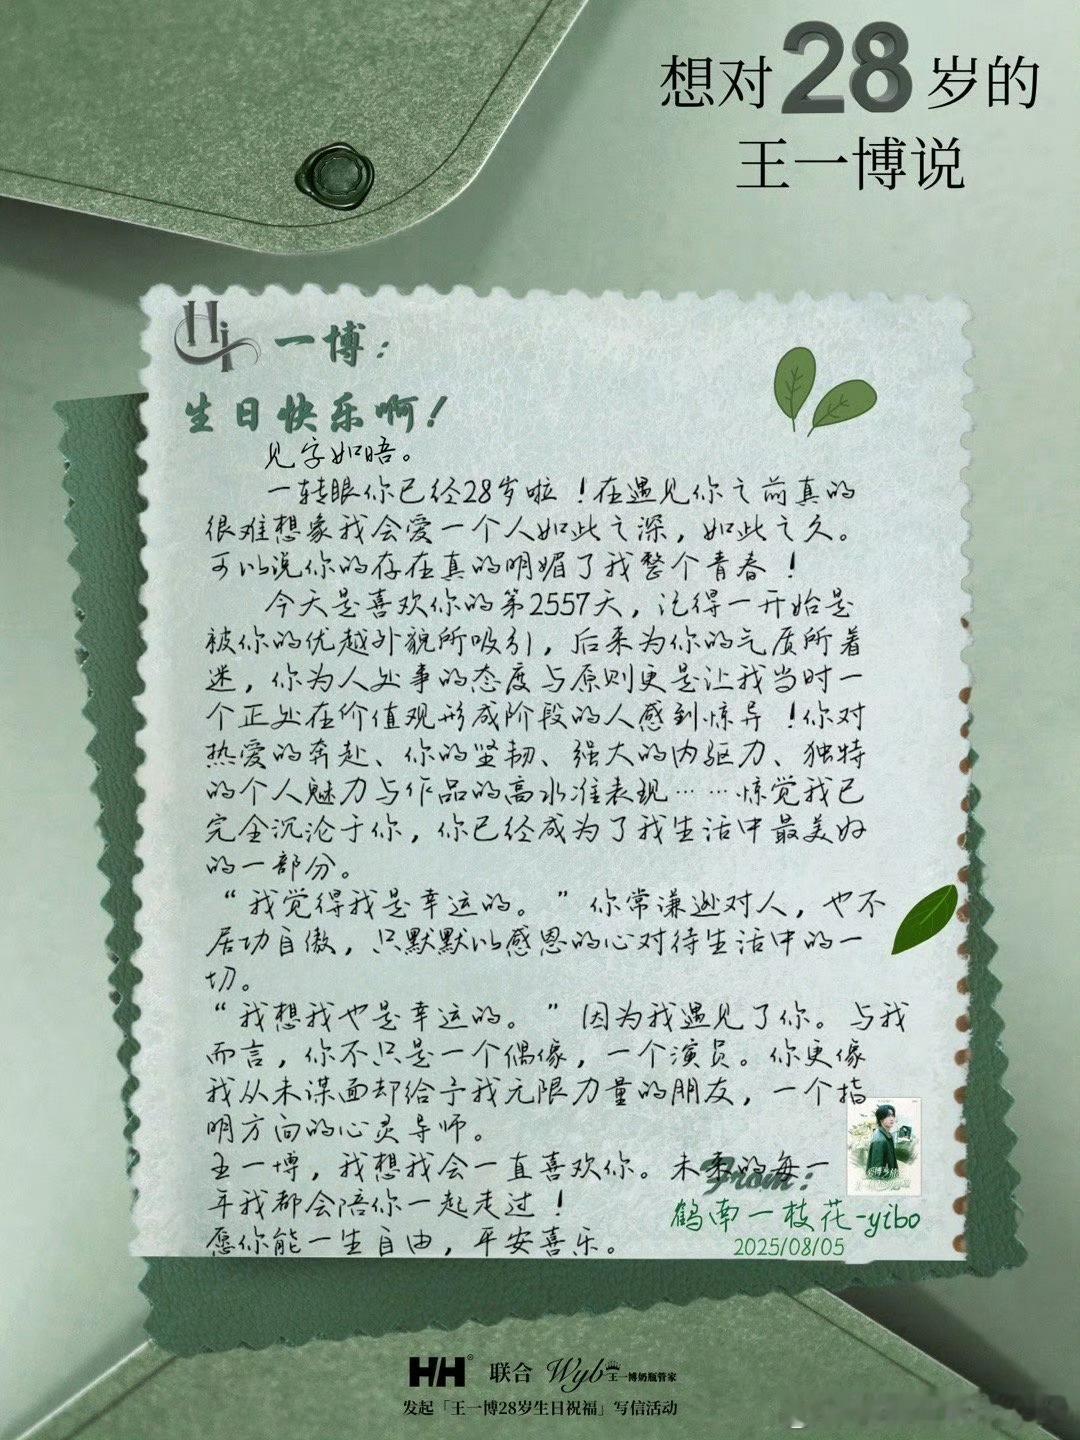 想对28岁的
王一博说
Hi 一博：
生日快乐啊！
见字如晤。
一转眼你已经28岁啦！在遇见你之前真的
很难想象我会爱一个人如此之深，如此之久。
可以说你的存在真的明媚了我整个青春！
今天是喜欢你的第2557天，记得一开始是
被你的优越外貌所吸引，后来为你的气质所着
迷，你为人处事的态度与原则更是让我当时一
个正处在价值观形成阶段的人感到惊异！你对
热爱的奔赴、你的坚韧、强大的内驱力、独特
的个人魅力与作品的高水准表现……惊觉我已
完全沉沦于你，你已经成为了我生活中最美好
的一部分。
“我觉得我是幸运的。”你常谦逊对人，也不
居功自傲，只默默以感恩的心对待生活中的一
切。
“我想我也是幸运的。”因为我遇见了你。与我
而言，你不只是一个偶像，一个演员。你更像
我从未谋面却给予我无限力量的朋友，一个指
明方向的心灵导师。
王一博，我想我会一直喜欢你。未来的每一
年我都会陪你一起走过！
愿你能一生自由，平安喜乐。
From：
鹤南一枝花-yibo
2025/08/05
HH® 联合 Wyb王一博奶瓶管家
发起「王一博28岁生日祝福」写信活动